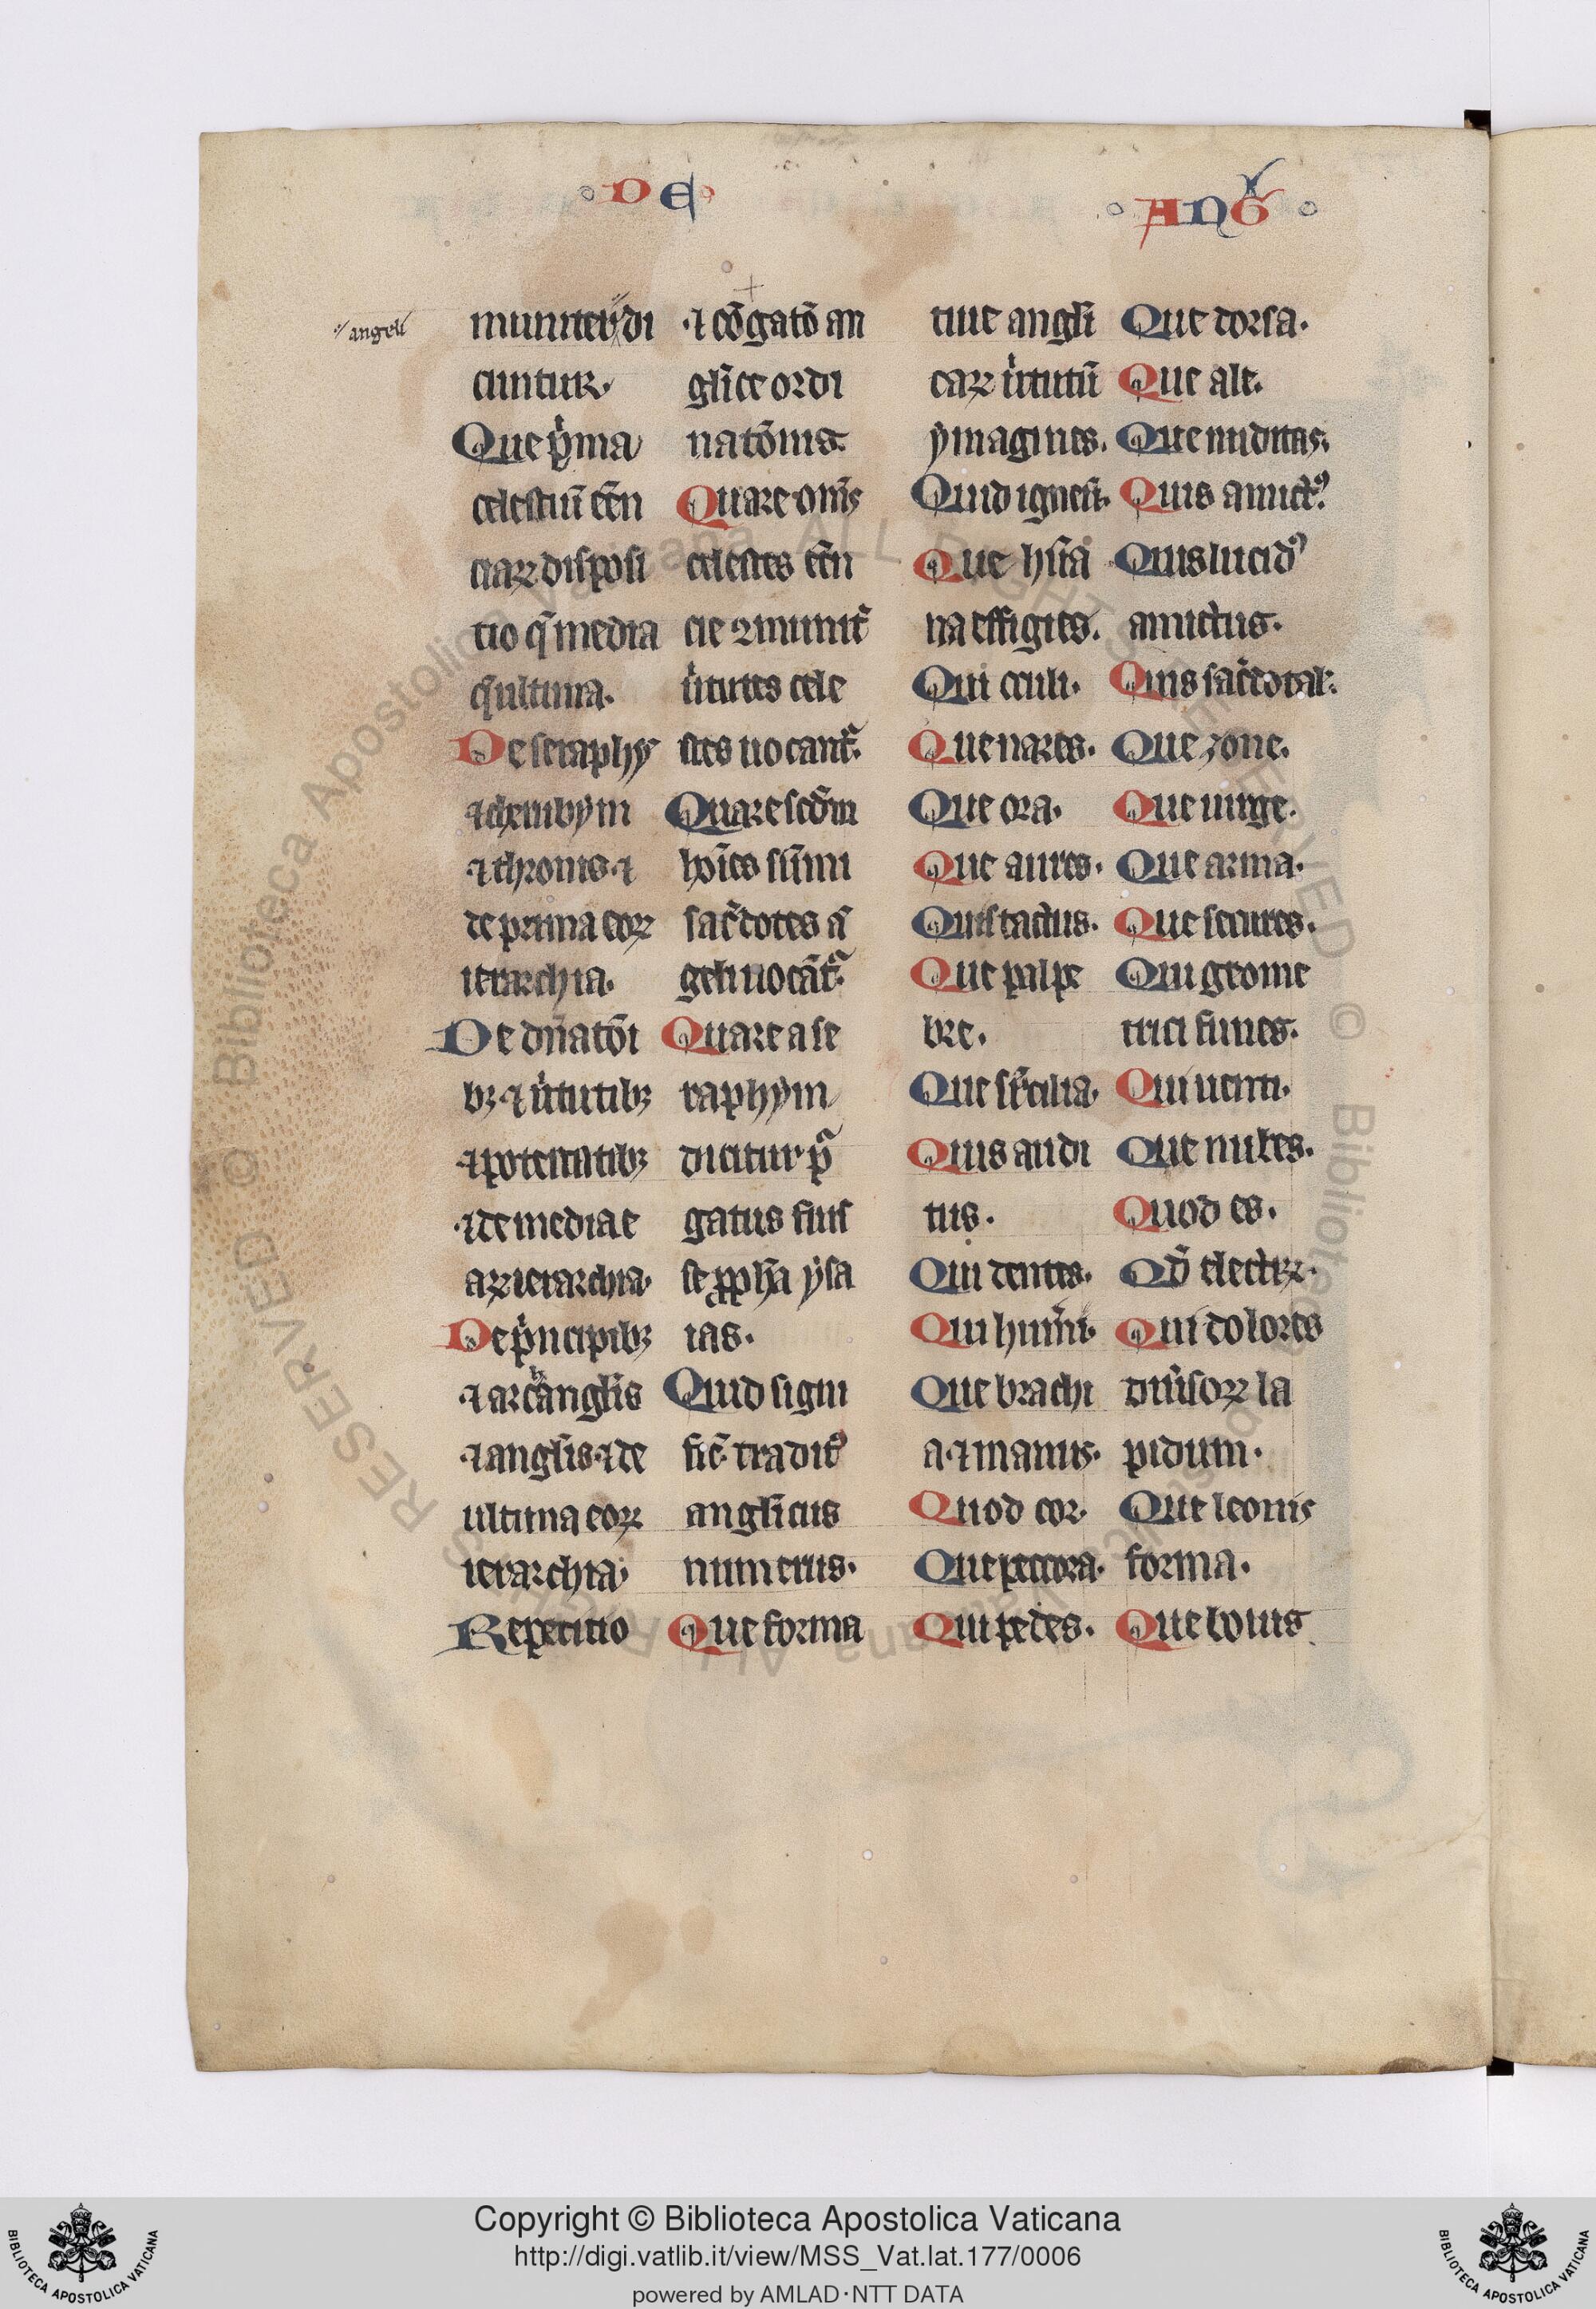 DE
ANG̾
angeli
muniter di
cuntur.
Que p̓ma
celestiū eēn
ciaꝝ disposi
tio q̄ media
q̄ ultima.
De seraphy
⁊ cherubym
⁊ thronis ⁊
de prima eoꝝ
ierarchia.
De dn̄atōi
bꝫ ⁊ u̓tutibꝫ
⁊ potestatibꝫ
⁊ de media e
aꝝ ierarchia.
De p̓ncipibꝫ
⁊ archanglīs
⁊ anglīs ⁊ de
ultima eoꝝ
ierarchia.
Repetitio
⁊ cōgatō an
glīce ordi
natōnis.
Quare om̄s
celestes eēn
cie ꝯmunit̓
u̓tutes cele
stes uocant̾.
Quare scd̄m
hoīes sum̄i
sac̓dotes a̅
geli uocāt̾.
Quare a se
raphym
dicitur p̾
gatus fuis
se ꝓpha̅ ysa
ias.
Quid signi
fic̄. tradit̾
anglīcus
numerus.
Que forma
tiue anglī
caꝝ u̓tutū
ymagines.
Quid igneū.
Que hu̅a
na effigies.
Qui oculi.
Que nares.
Que ora.
Que aures.
Quis tactus.
Que palpe
bre.
Que sup̄cilia.
Quis audi
tus.
Qui dentes.
Qui hum̓i.
Que brachi
a ⁊ manus.
Quod cor.
Que pectora.
Qui pedes.
Que dorsa.
Que ale.
Que nuditas.
Quis amictꝰ.
Quis lucidꝰ
amictus.
Quis sac̓dotal̓.
Que zone.
Que uirge.
Que arma.
Que secures.
Qui geome
trici funes.
Qui uenti.
Que nubes.
Quod es.
Qd̄ electꝝ.
Qui colores
diu̓soꝝ la
pidum.
Que leonis
forma.
Que bouis
Copyright © Biblioteca Apostolica Vaticana
http://digi.vatlib.it/view/MSS_Vat.lat.177/0006
powered by AMLAD·NTT DATA